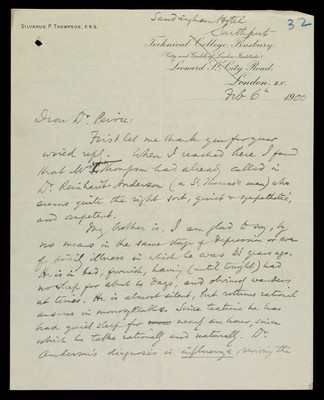 32
Sandringham Hotel
Southport
SILVANUS P. THOMPSON, F.R.S.
Technical College, Finsbury.
(City and Guilds of London Institute)
Leonard St. City Road.
London, E.C.
Feb 6th 1900
Dear Dr.
First let me thank you for your
wired reply. When I reached here I found
that Mr Thompson had already called in
Dr. Reinhardt Anderson (a St. Thomas's man) who
seems quite the right sort, quiet & sympathetic,
and competent.
My brother is, I am glad to say, by
no means in the same stage of depression or even
of bodily illness in which he was 3½ years ago.
He is in bed, feverish, having (until tonight) had
no sleep for about 4 days, and obviously wanders
at times. He is almost silent, but returns rational
answers in monosyllables. Since tea time he has
had quiet sleep for nearly an hour, since
which he talks rationally and naturally. Dr.
Anderson's diagnosis is influenza reviving the